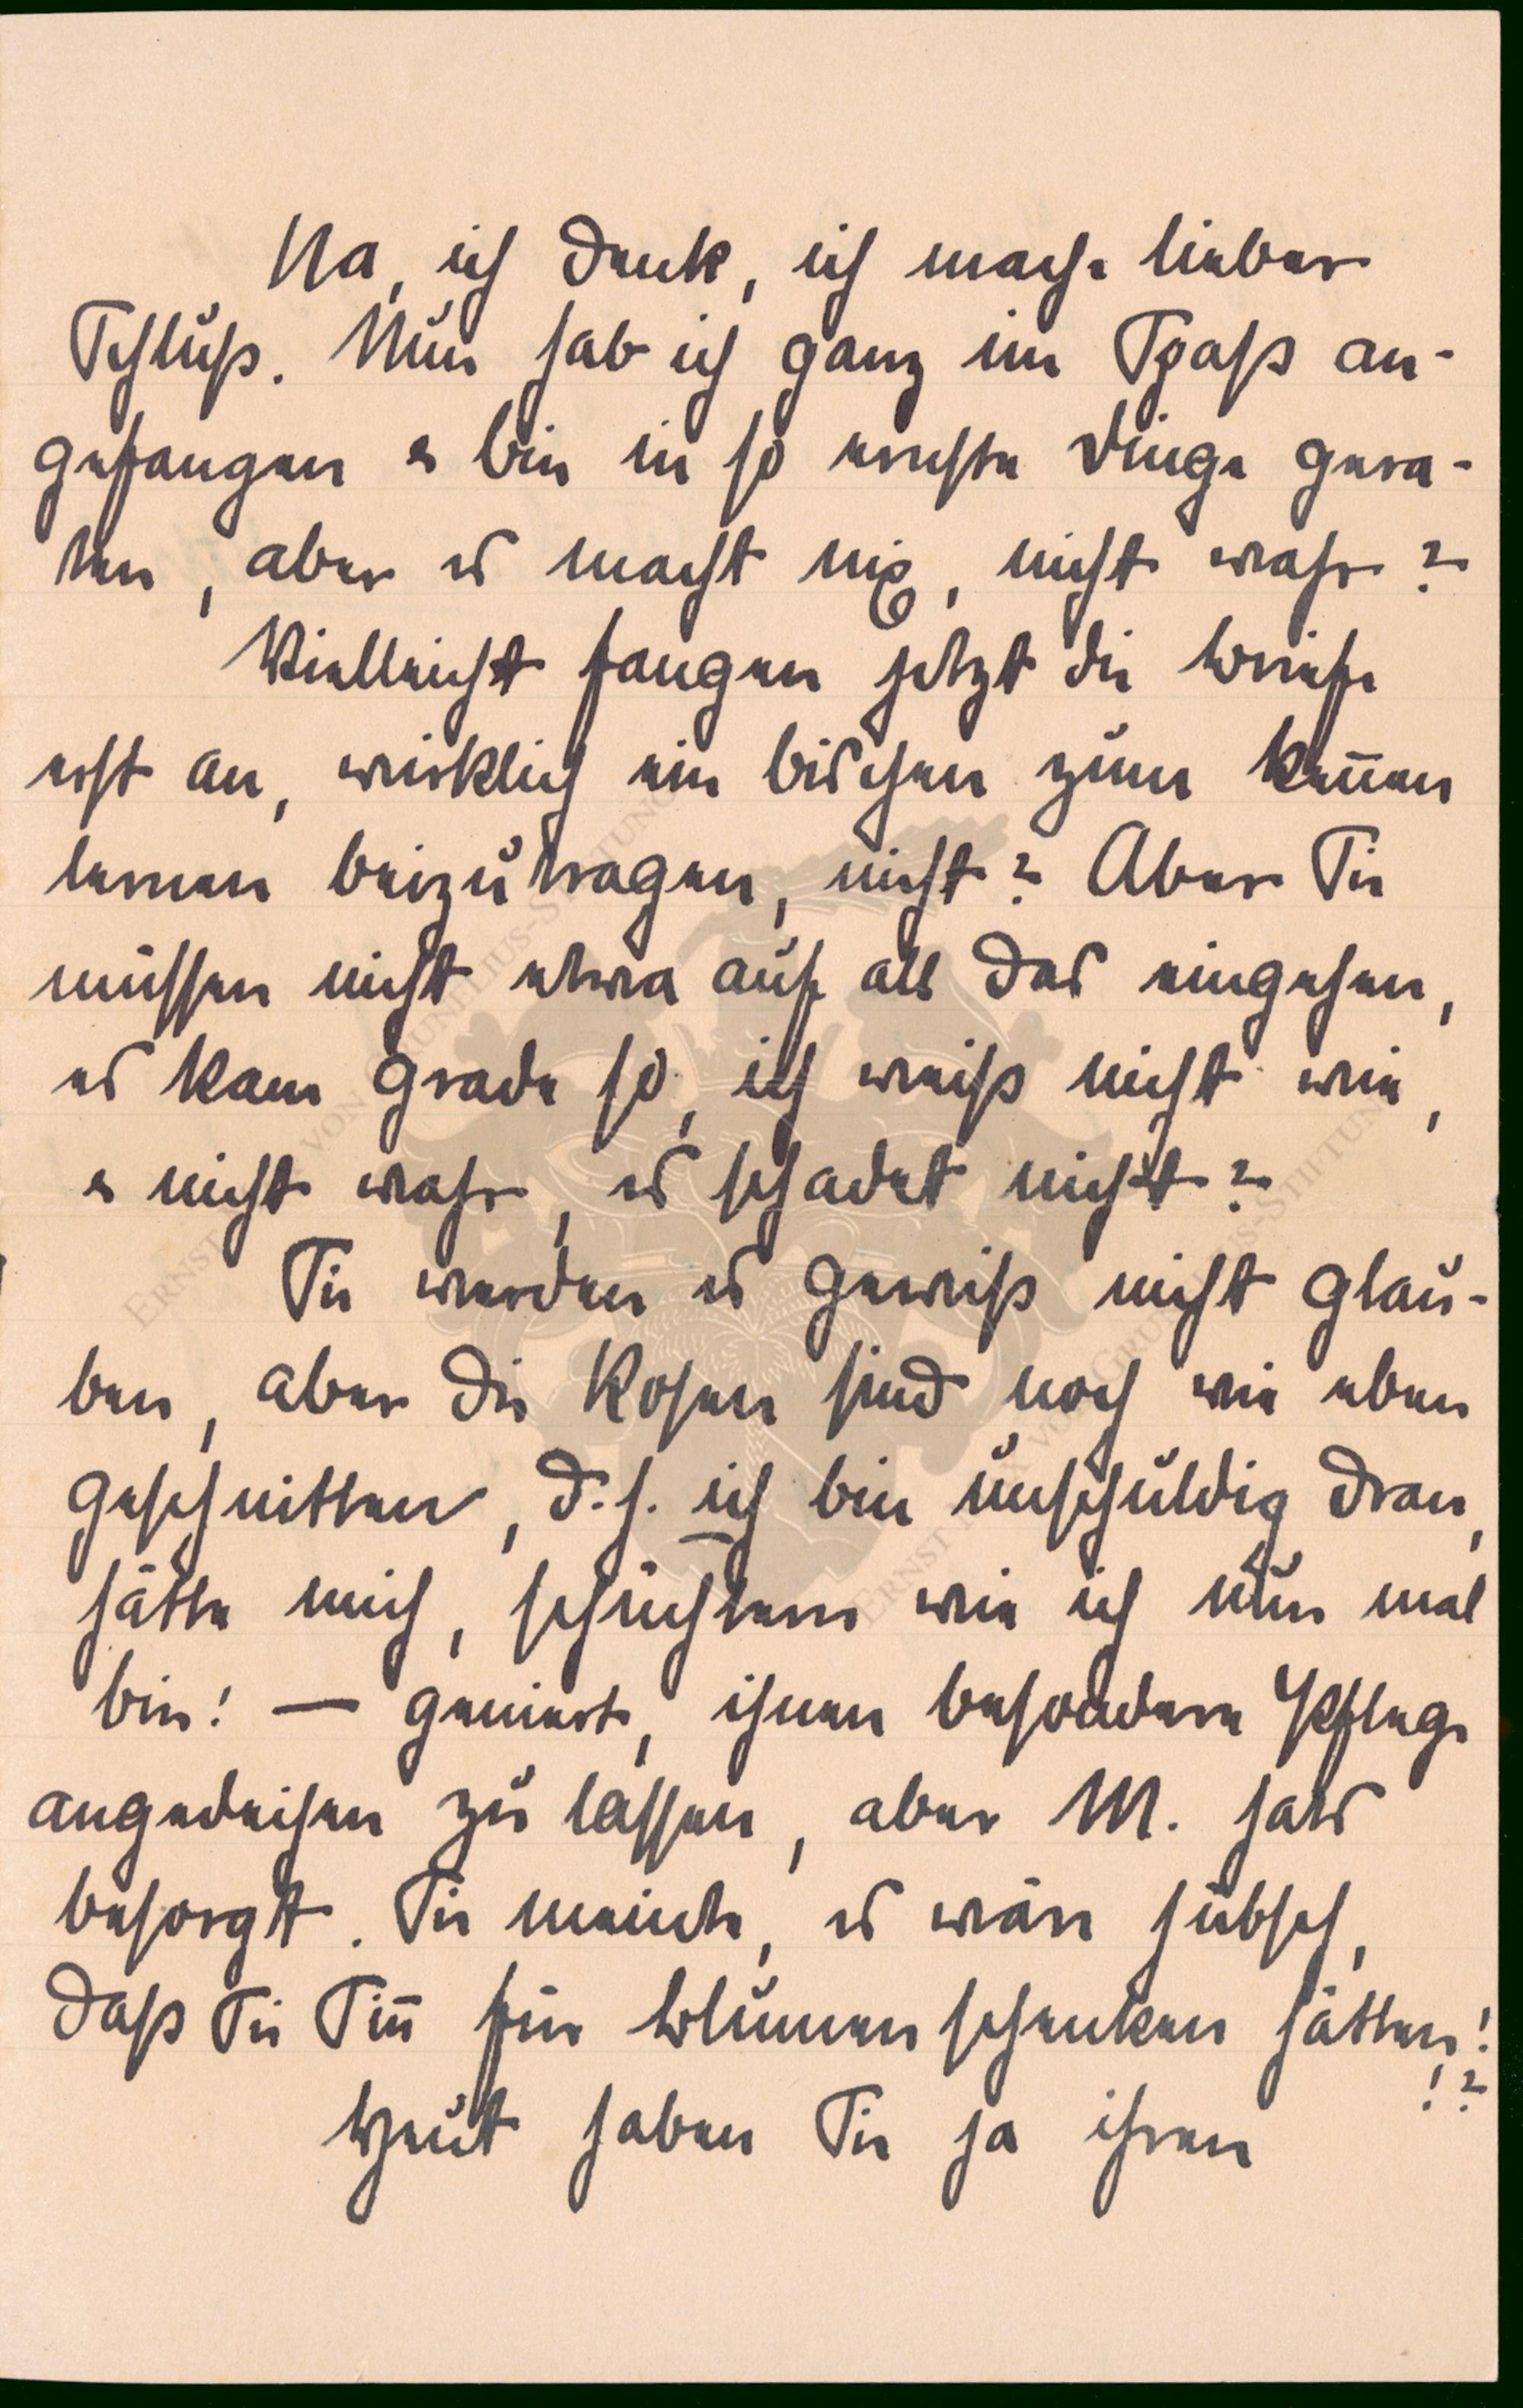 Na, ich denk, ich mache lieber
Schluß. Nun hab ich ganz im Spaß an-
gefangen & bin in so ernste Dinge gera-
ten, aber es macht nix, nicht wahr?
Vielleicht fangen jetzt die Briefe
erst an, wirklich ein bischen zum keñen
lernen beizutragen, nicht? Aber Sie
müssen nicht etwa auf all das eingehen,
es kam grade so, ich weiß nicht wie,
& nicht wahr, es schadet nicht?
Sie werden es gewiß nicht glau-
ben, aber die Rosen sind noch wie eben
geschnitten, d.h. ich bin unschuldig dran,
hätte mich, schüchtern wie ich nun mal
bin! — geniert, ihnen besondere Pflege
angedeihen zu lassen, aber M. hats
besorgt. Sie meinte, es wär hübsch,
daß Sie Siñ für Blumen schenken hätten!
!?
Heut haben Sie ja ihren
ERNST VON GRUNELIUS-STIFTUNG
ERNST VON GRUNELIUS-STIFTUNG